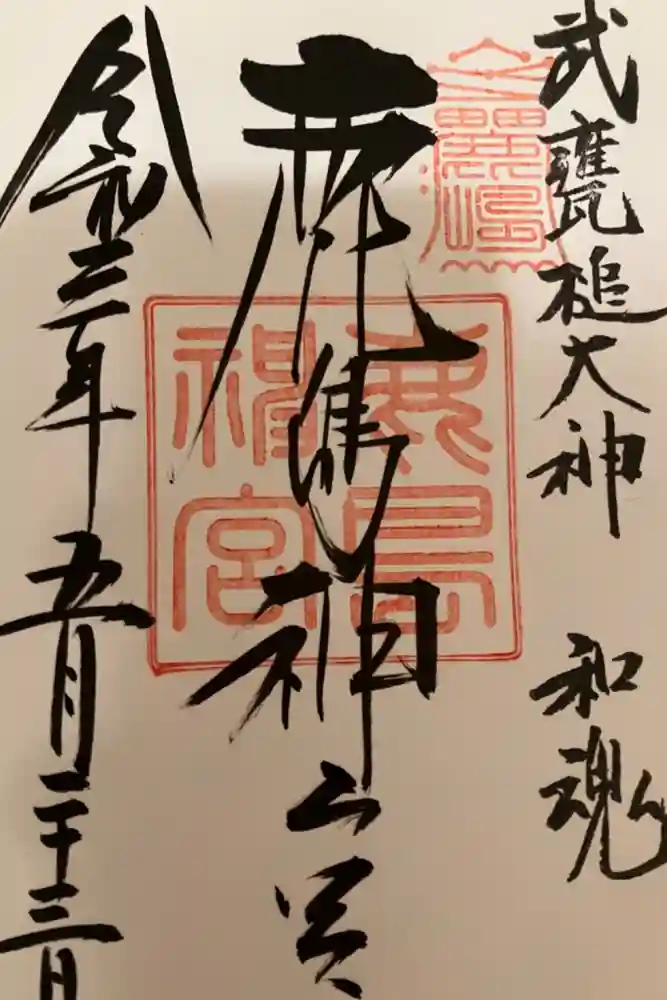 武甕槌大神 和魂
鹿島神宮
鹿島
神宮
令和三年五月二十三日